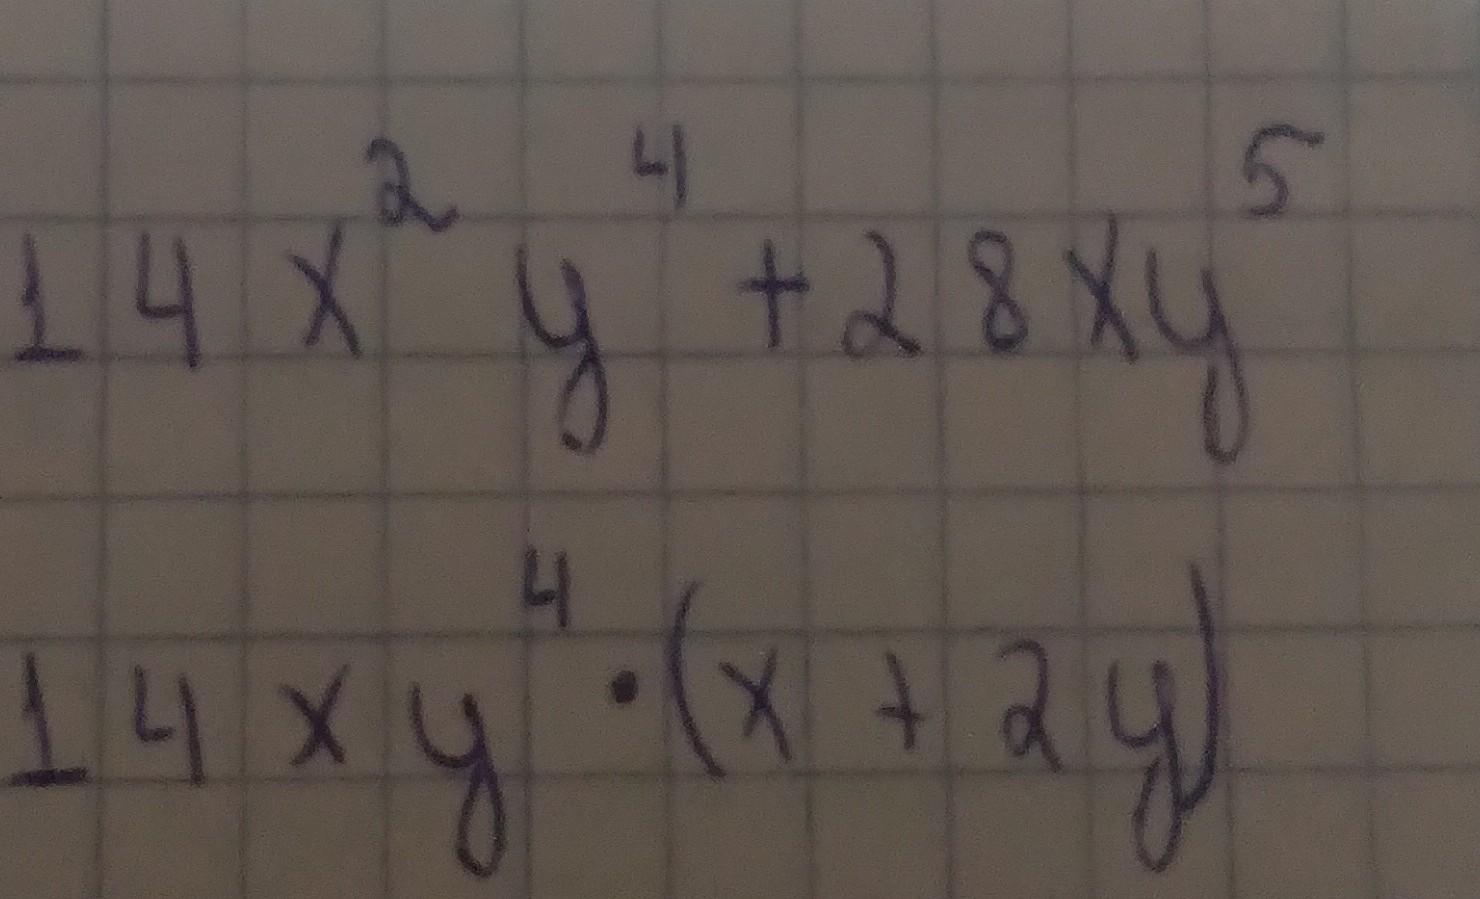 14x²y⁴+28xy⁵
14xy⁴·(x+2y)